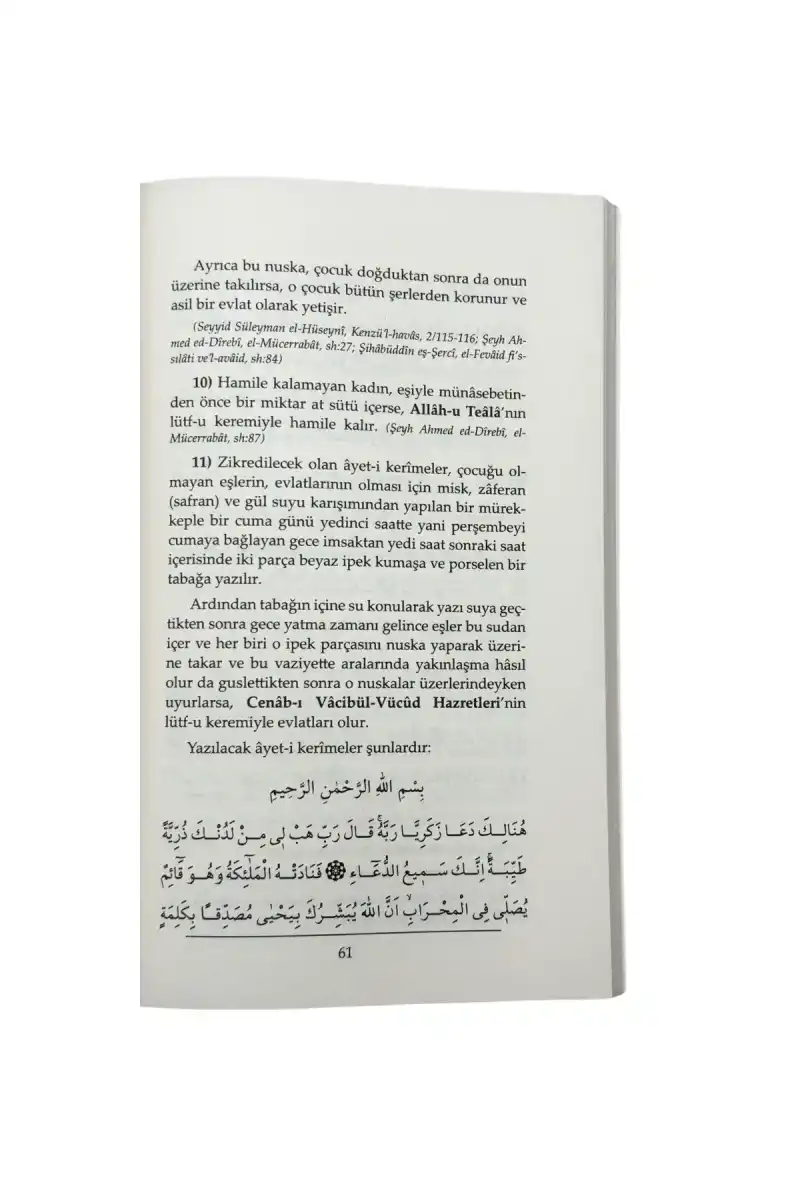 Ayrıca bu nuska, çocuk doğduktan sonra da onun
üzerine takılırsa, o çocuk bütün şerlerden korunur ve
asil bir evlat olarak yetişir.
(Seyyid Süleyman el-Hüseynî, Kenzü'l-havâs, 2/115-116; Şeyh Ah-
med ed-Dîrebî, el-Mücerrabât, sh:27; Şihâbüddîn eş-Şercî, el-Fevâid fi's-
sılâti ve'l-avâid, sh:84)
10) Hamile kalamayan kadın, eşiyle münâsebetin-
den önce bir miktar at sütü içerse, Allâh-u Teâlâ'nın
lütf-u keremiyle hamile kalır. (Şeyh Ahmed ed-Dîrebî, el-
Mücerrabât, sh:87)
11) Zikredilecek olan âyet-i kerîmeler, çocuğu ol-
mayan eşlerin, evlatlarının olması için misk, zâferan
(safran) ve gül suyu karışımından yapılan bir mürek-
keple bir cuma günü yedinci saatte yani perşembeyi
cumaya bağlayan gece imsaktan yedi saat sonraki saat
içerisinde iki parça beyaz ipek kumaşa ve porselen bir
tabağa yazılır.
Ardından tabağın içine su konularak yazı suya geç-
tikten sonra gece yatma zamanı gelince eşler bu sudan
içer ve her biri o ipek parçasını nuska yaparak üzeri-
ne takar ve bu vaziyette aralarında yakınlaşma hâsıl
olur da guslettikten sonra o nuskalar üzerlerindeyken
uyurlarsa, Cenâb-ı Vâcibül-Vücûd Hazretleri'nin
lütf-u keremiyle evlatları olur.
Yazılacak âyet-i kerîmeler şunlardır:
بِسْمِ اللّٰهِ الرَّحْمٰنِ الرَّحِيمِ
هُنَالِكَ دَعَا زَكَرِيَّا رَبَّهُۚ قَالَ رَبِّ هَبْ لٖى مِنْ لَدُنْكَ ذُرِّيَّةً
طَيِّبَةًۚ اِنَّكَ سَمٖيعُ الدُّعَٓاءِ ۞ فَنَادَتْهُ الْمَلٰٓئِكَةُ وَهُوَ قَٓائِمٌ
يُصَلّٖى فِى الْمِحْرَابِۙ اَنَّ اللّٰهَ يُبَشِّرُكَ بِيَحْيٰى مُصَدِّقًا بِكَلِمَةٍ
61